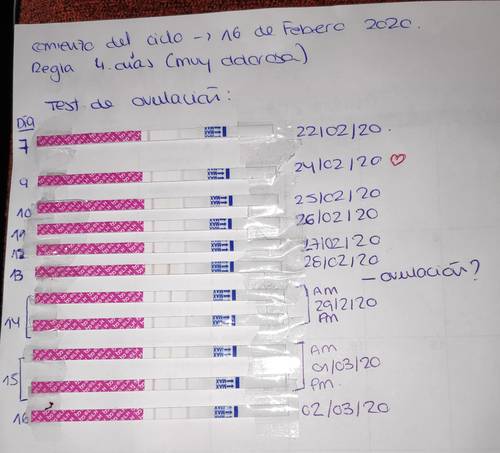 comienzo del ciclo → 16 de Febero 2020.
Regla 4 días (muy dolorosa)
Test de ovulación:
Día
7 22/02/20.
9 24/02/20 ♡
10 25/02/20
11 26/02/20
12 27/02/20
13 28/02/20
— ovulación?
14 AM
29/2/20
PM
15 AM
01/03/20
PM.
16 02/03/20